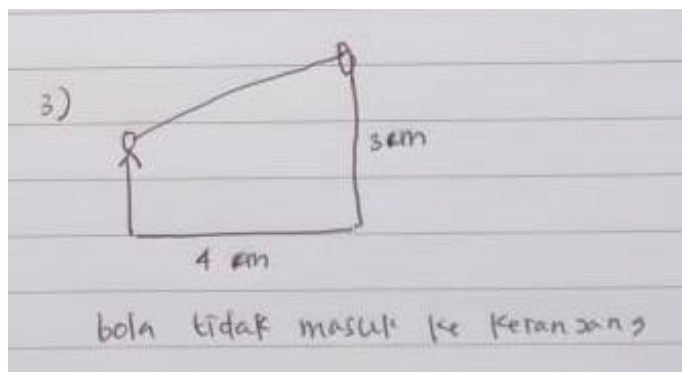 3)
3 cm
4 cm
bola tidak masuk ke keranjang